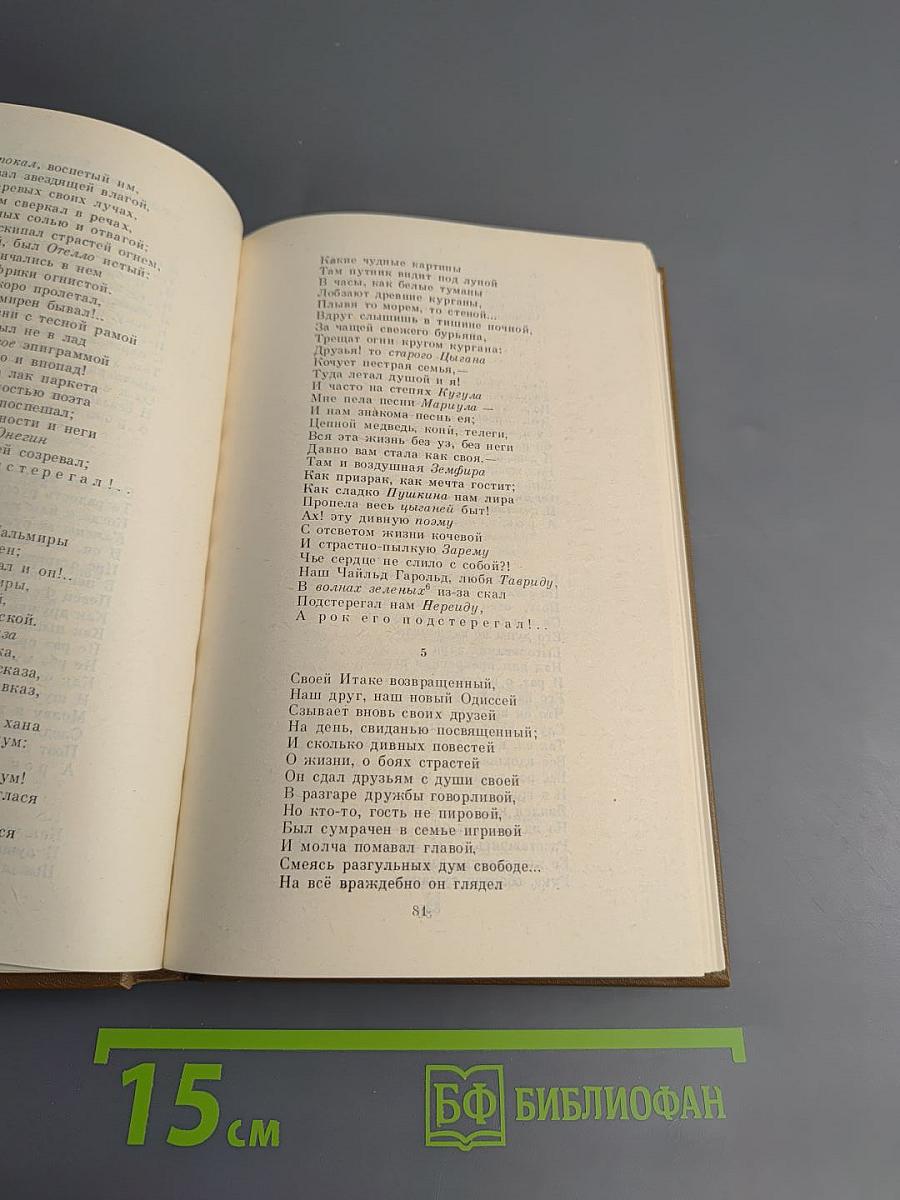 покал, воспетый им,
вал звездящей влагой,
своих лучах,
м сверкал в речах,
солью и отвагой;
скипал страстей огнем,
й, был Отелло истый:
нчались в нем
фрики огнистой.
коро пролетал,
мирен бывал!..
ни с тесной рамой
ыл не в лад
ое эпиграммой
о и впопад!
лак паркета
ностью поэта
поспешал;
ности и неги
Онегин
ей созревал;
с т е р е г а л !..
альмиры
ен;
ал и он!..
иры,
й,
ской.
за
ка,
сказа,
вказ,
хана
ум:
ум!
глася
ся
Какие чудные картины
Там путник видит под луной
В часы, как белые туманы
Лобзают древние курганы,
Плывя то морем, то стеной...
Вдруг слышишь в тишине ночной,
За чащей свежего бурьяна,
Трещат огни кругом кургана:
Друзья! то старого Цыгана
Кочует пестрая семья,—
Туда летал душой и я!
И часто на степях Кугула
Мне пела песни Мариула —
И нам знакома песнь ея;
Цепной медведь, кони, телеги,
Вся эта жизнь без уз, без неги
Давно вам стала как своя.—
Там и воздушная Земфира
Как призрак, как мечта гостит;
Как сладко Пушкина нам лира
Пропела весь цыганей быт!
Ах! эту дивную поэму
С отсветом жизни кочевой
И страстно-пылкую Зарему
Чье сердце не слило с собой?!
Наш Чайльд Гарольд, любя Тавриду,
В волнах зеленых⁶ из-за скал
Подстерегал нам Нереиду,
А р о к е г о п о д с т е р е г а л !..
5
Своей Итаке возвращенный,
Наш друг, наш новый Одиссей
Сзывает вновь своих друзей
На день, свиданью посвященный;
И сколько дивных повестей
О жизни, о боях страстей
Он сдал друзьям с души своей
В разгаре дружбы говорливой,
Но кто-то, гость не пировой,
Был сумрачен в семье игривой
И молча помавал главой,
Смеясь разгульных дум свободе...
На всё враждебно он глядел
81
15 см
БФ БИБЛИОФАН